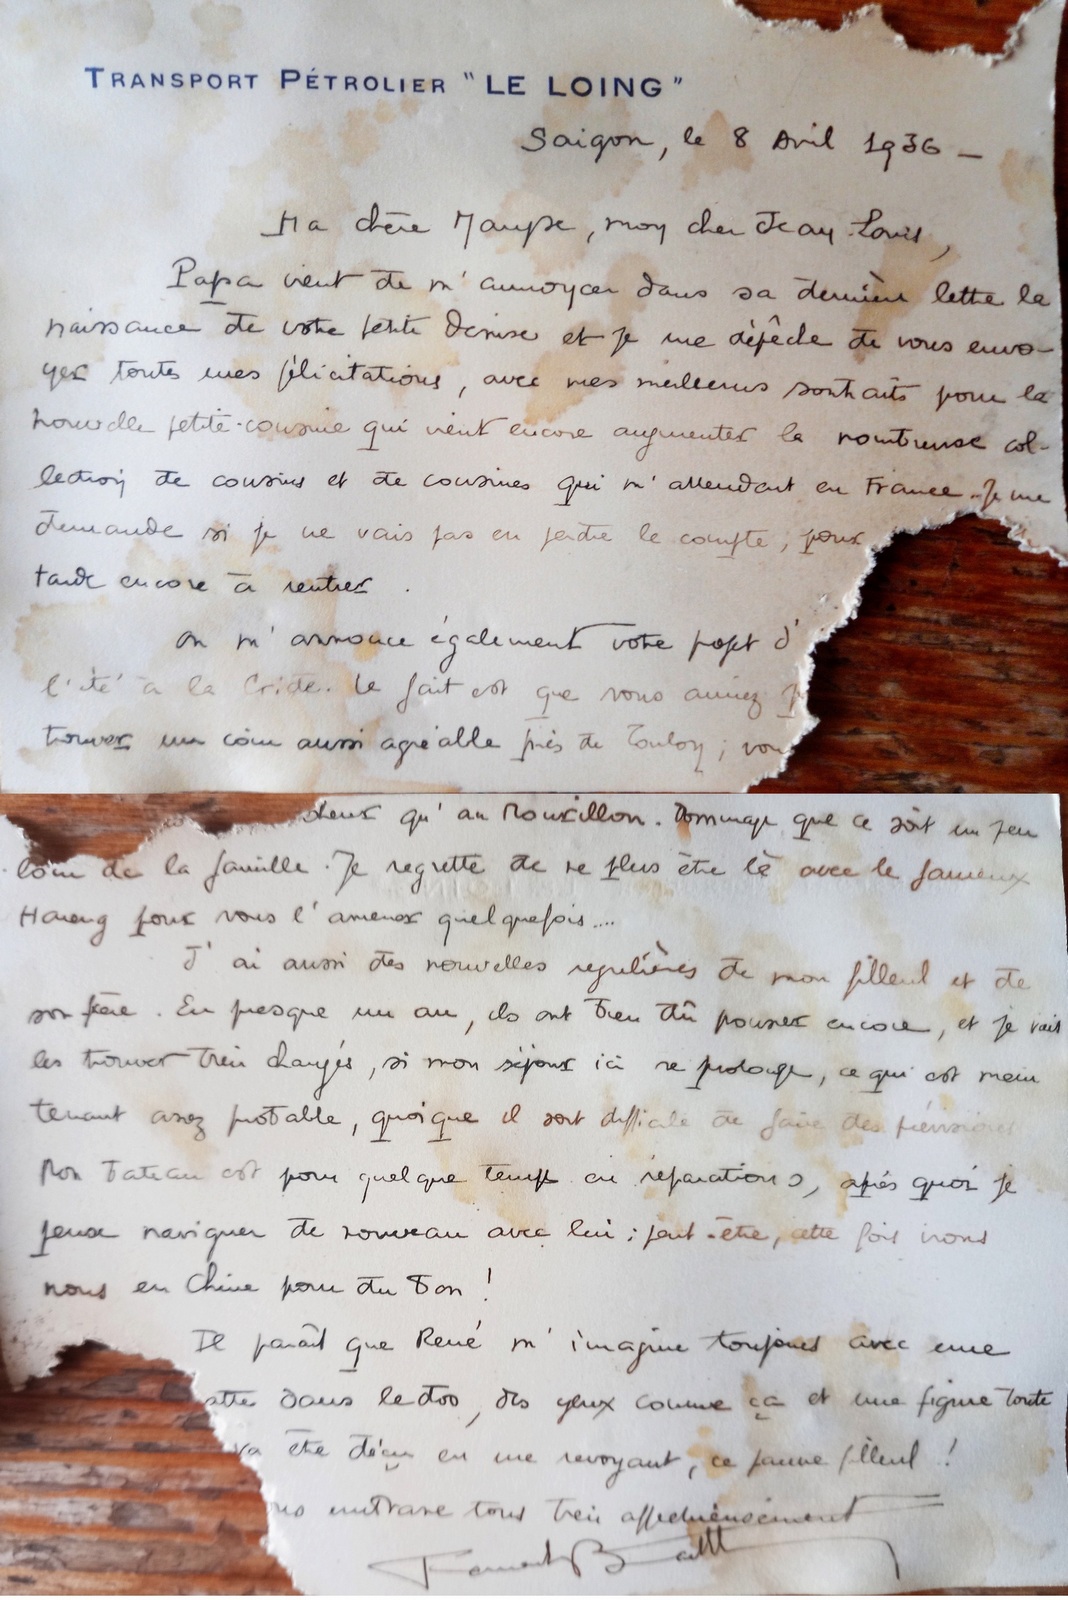 TRANSPORT PÉTROLIER "LE LOING"
Saigon, le 8 Avril 1936 -
Ma chère , mon cher Jean Louis,
Papa vient de m'annoncer dans sa dernière lettre la
naissance de votre petite Denise et je me dépêche de vous envo-
yer toutes mes félicitations, avec mes meilleurs souhaits pour la
nouvelle petite-cousine qui vient encore augmenter la nombreuse col-
lection de cousins et de cousines qui m'attendent en France. Je me
demande si je ne vais pas en perdre le compte, pour
tarde encore à rentrer.
On m'annonce également votre projet d'
l'été à la . Le fait est que vous auriez
trouver un coin aussi agréable près de Toulon ; vous
qu'au Mourillon. Dommage que ce soit un peu
loin de la famille. Je regrette de ne plus être là avec le fameux
Hareng pour vous l'amener quelquefois....
J'ai aussi des nouvelles regulières de mon filleul et de
son frère. En presque un an, ils ont bien dû pousser encore, et je vais
les trouver bien changés, si mon séjour ici se prolonge, ce qui est main
tenant assez probable, quoique il soit difficile de faire des prévisions
Mon bateau est pour quelque temps en réparations, après quoi je
peux naviguer de nouveau avec lui ; peut-être, cette fois irons
nous en Chine pour du bon !
Il paraît que René m'imagine toujours avec une
atte dans le dos, des yeux comme ça et une figure toute
va être déçu en me revoyant, ce jeune filleul !
embrasse tous bien affectueusement